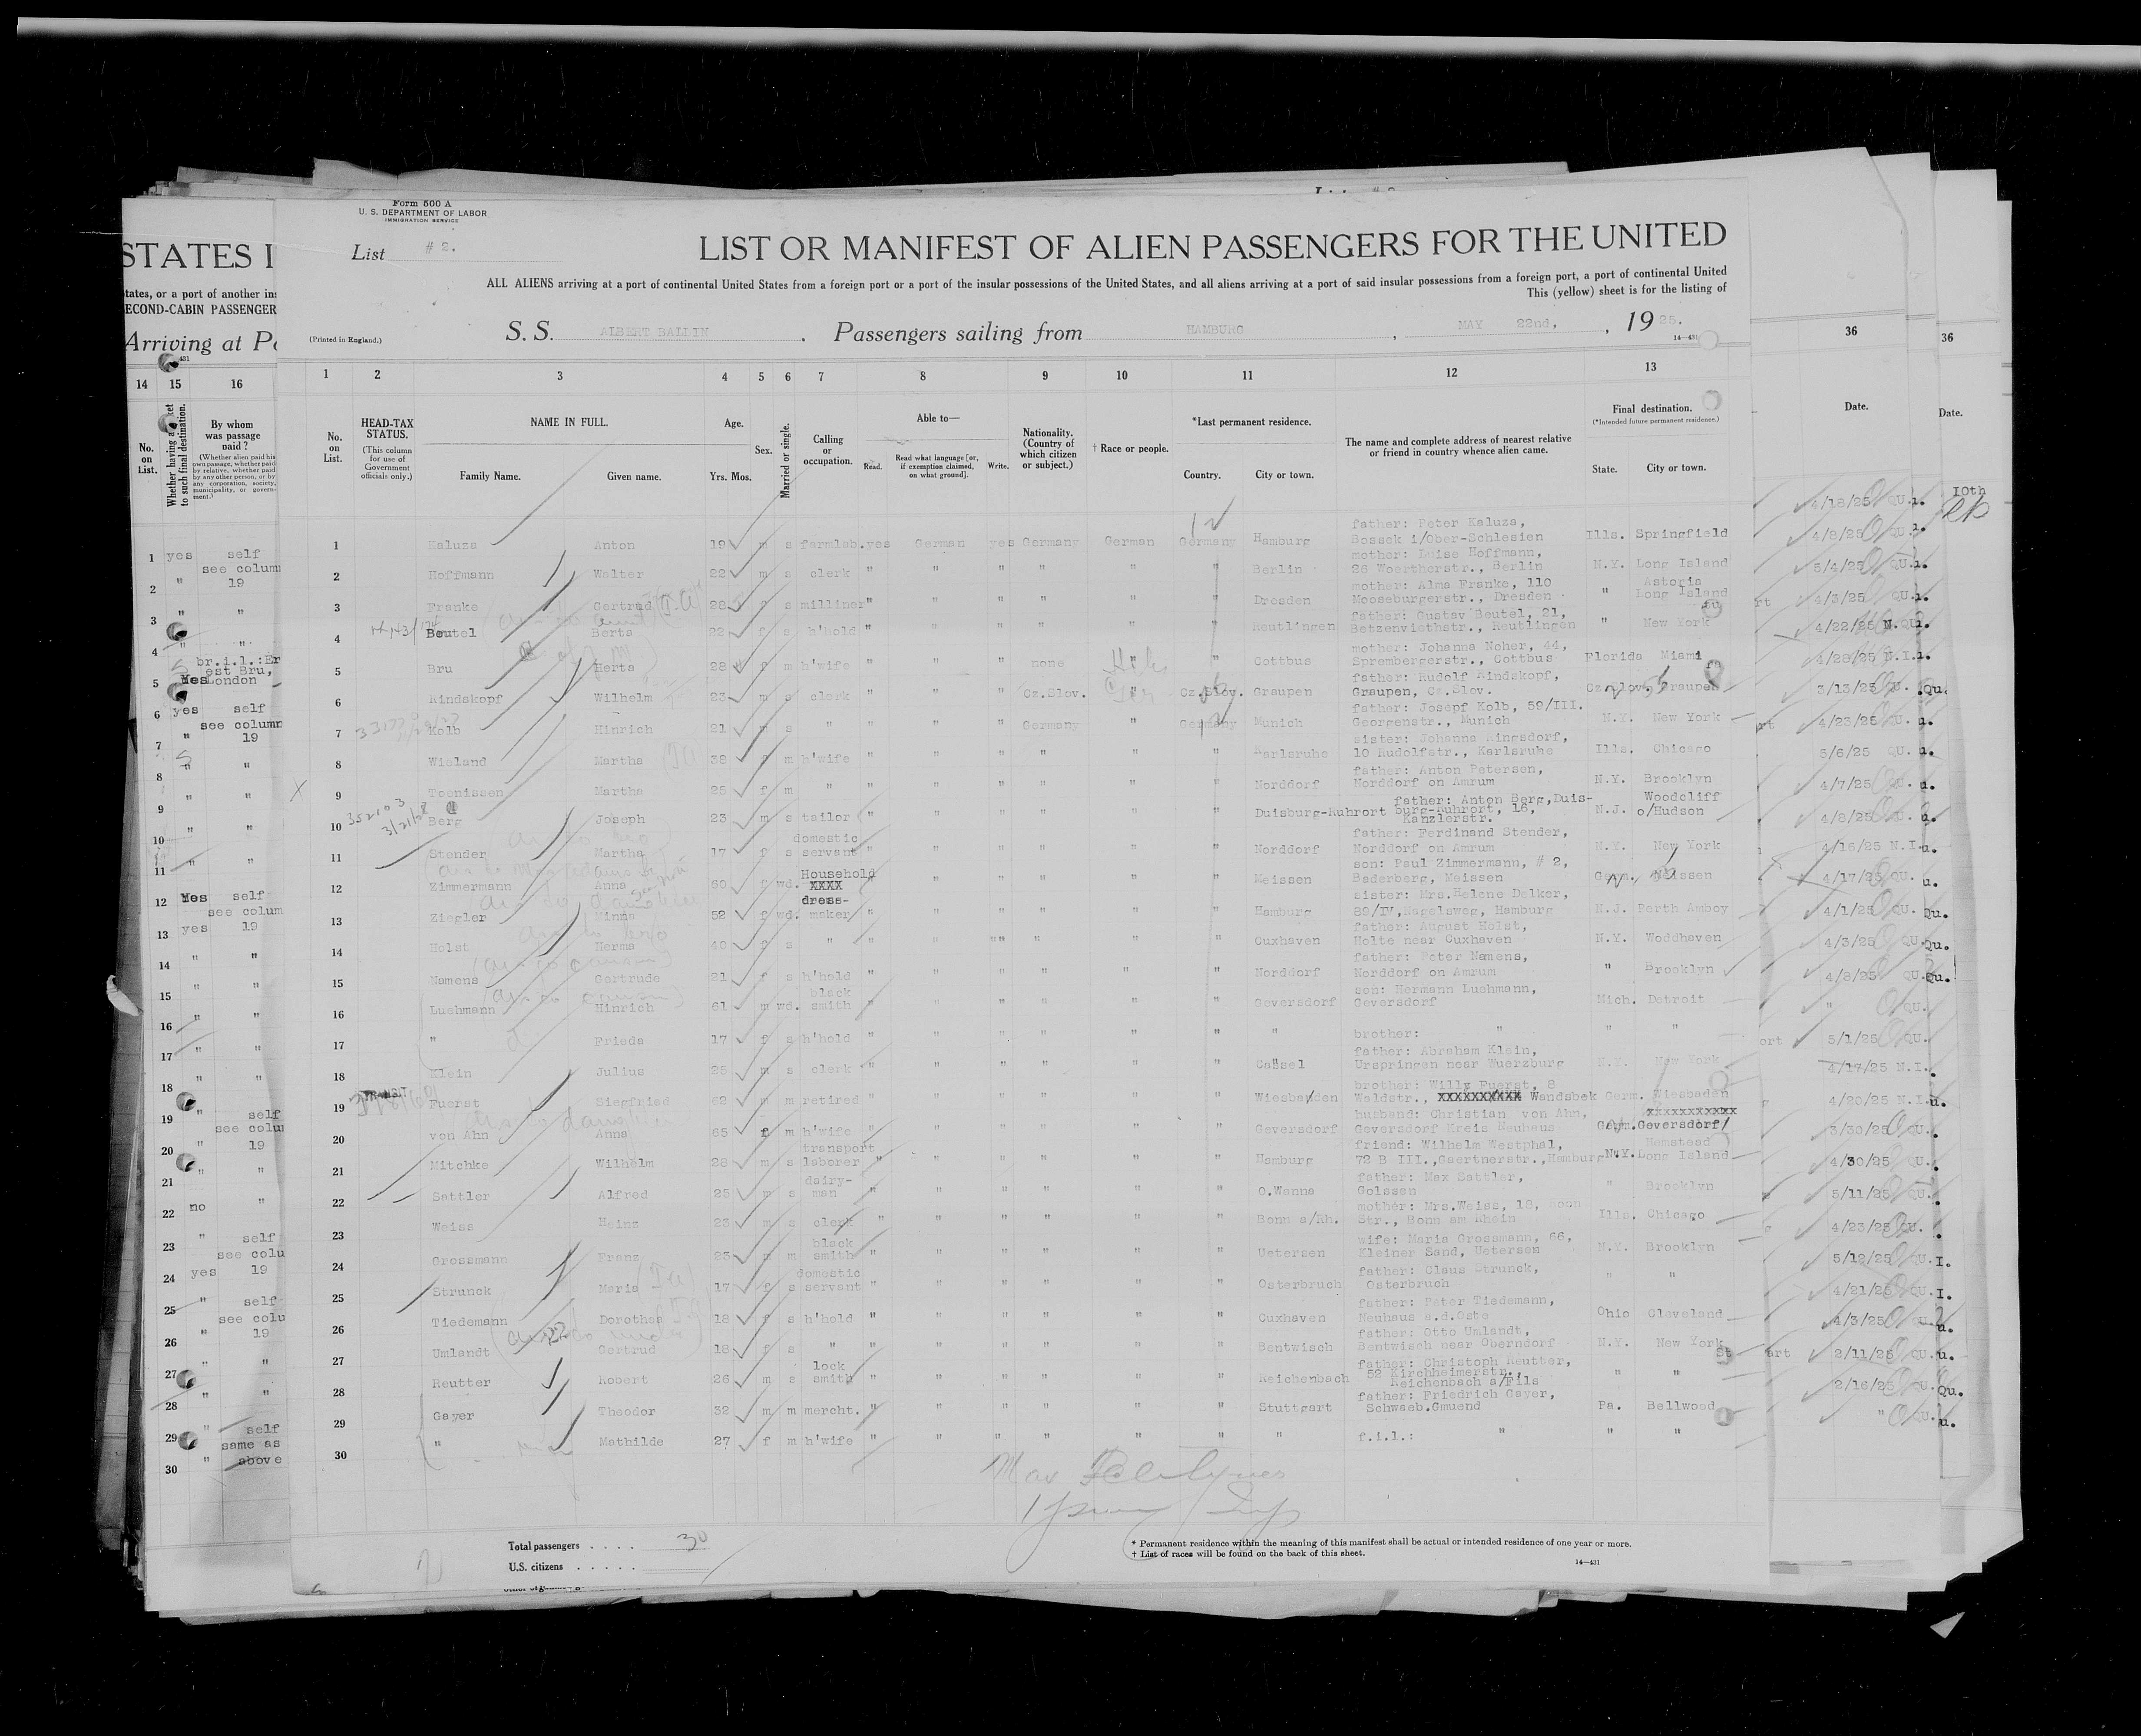 Form 500 A
U. S. DEPARTMENT OF LABOR
IMMIGRATION SERVICE
List # 2.
LIST OR MANIFEST OF ALIEN PASSENGERS FOR THE UNITED
ALL ALIENS arriving at a port of continental United States from a foreign port or a port of the insular possessions of the United States, and all aliens arriving at a port of said insular possessions from a foreign port, a port of continental United
This (yellow) sheet is for the listing of
(Printed in England.)
S. S. ALBERT BALLIN . Passengers sailing from HAMBURG , MAY 22nd, , 1925.
14—431
1 2 3 4 5 6 7 8 9 10 11 12 13
No. on List.
HEAD-TAX STATUS.
(This column for use of Government officials only.)
NAME IN FULL.
Family Name. Given name.
Age.
Yrs. Mos.
Sex.
Married or single.
Calling or occupation.
Able to—
Read. Read what language [or, if exemption claimed, on what ground]. Write.
Nationality. (Country of which citizen or subject.)
† Race or people.
*Last permanent residence.
Country. City or town.
The name and complete address of nearest relative or friend in country whence alien came.
Final destination.
(*Intended future permanent residence.)
State. City or town.
1 Kaluza Anton 19 m s farmlab. yes German yes Germany German Germany Hamburg father: Peter Kaluza, Bossek i/Ober-Schlesien Ills. Springfield
2 Hoffmann Walter 22 m s clerk " " " " " " Berlin mother: Luise Hoffmann, 26 Woertherstr., Berlin N.Y. Long Island
3 Franke Gertrud 28 f s milliner " " " " " " Dresden mother: Alma Franke, 110 Mooseburgerstr., Dresden " Astoria Long Island
4 Beutel Berta 22 f s h'hold " " " " " " Reutlingen father: Gustav Beutel, 21, Betzenviethstr., Reutlingen " New York
5 Bru Herta 28 f m h'wife " " " none " " Cottbus mother: Johanna Noher, 44, Sprembergerstr., Cottbus Florida Miami
6 Rindskopf Wilhelm 23 m s clerk " " " Cz.Slov. " Cz.Slov. Graupen father: Rudolf Rindskopf, Graupen, Cz.Slov. Cz.Slov. Graupen
7 Kolb Hinrich 21 m s " " " " Germany " Germany Munich father: Josepf Kolb, 59/III. Georgenstr., Munich N.Y. New York
8 Wieland Martha 38 f m h'wife " " " " " " Karlsruhe sister: Johanna Ringsdorf, 10 Rudolfstr., Karlsruhe Ills. Chicago
9 Toenissen Martha 25 f m " " " " " " " Norddorf father: Anton Petersen, Norddorf on Amrum N.Y. Brooklyn
10 Berg Joseph 23 m s tailor " " " " " " Duisburg-Ruhrort father: Anton Berg, Duis-burg-Ruhrort, 16, Kanzlerstr. N.J. Woodcliff o/Hudson
11 Stender Martha 17 f s domestic servant " " " " " " Norddorf father: Ferdinand Stender, Norddorf on Amrum N.Y. New York
12 Zimmermann Anna 60 f wd. Household XXXX " " " " " " Meissen son: Paul Zimmermann, # 2, Baderberg, Meissen Germ. Meissen
13 Ziegler Minna 52 f wd. dress-maker " " " " " " Hamburg sister: Mrs.Helene Delker, 89/IV,Nagelsweg, Hamburg N.J. Perth Amboy
14 Holst Herma 40 f s " " " "" " " " Cuxhaven father: August Holst, Holte near Cuxhaven N.Y. Woddhaven
15 Namens Gertrude 21 f s h'hold " " " " " " Norddorf father: Peter Namens, Norddorf on Amrum " Brooklyn
16 Luehmann Hinrich 61 m wd. black smith " " " " " " Geversdorf son: Hermann Luehmann, Geversdorf Mich. Detroit
17 " Frieda 17 f s h'hold " " " " " " " brother: " " "
18 Klein Julius 25 m s clerk " " " " " " Cassel father: Abraham Klein, Urspringen near Wuerzburg N.Y. New York
19 TRANSIT Fuerst Siegfried 62 m m retired " " " " " " Wiesbaden brother: Willy Fuerst, 8 Waldstr., XXXXXXXXXX Wandsbek Germ. Wiesbaden
20 von Ahn Anna 65 f m h'wife " " " " " " Geversdorf husband: Christian von Ahn, Geversdorf Kreis Neuhaus XXXXXXXXXXX Germ. Geversdorf
21 Mitchke Wilhelm 28 m s transport laborer " " " " " " Hamburg friend: Wilhelm Westphal, 72 B III.,Gaertnerstr.,Hamburg N.Y. Hemstead Long Island
22 Sattler Alfred 25 m s dairy-man " " " " " " O.Wanna father: Max Sattler, Golssen " Brooklyn
23 Weiss Heinz 23 m s clerk " " " " " " Bonn a/Rh. mother: Mrs.Weiss, 18, Roon Str., Bonn am Rhein Ills. Chicago
24 Grossmann Franz 23 m m black smith " " " " " " Uetersen wife: Maria Grossmann, 66, Kleiner Sand, Uetersen N.Y. Brooklyn
25 Strunck Maria 17 f s domestic servant " " " " " " Osterbruch father: Claus Strunck, Osterbruch " "
26 Tiedemann Dorothea 18 f s h'hold " " " " " " Cuxhaven father: Peter Tiedemann, Neuhaus a.d.Oste Ohio Cleveland
27 Umlandt Gertrud 18 f s " " " " " " " Bentwisch father: Otto Umlandt, Bentwisch near Oberndorf N.Y. New York
28 Reutter Robert 26 m s lock smith " " " " " " Reichenbach father: Christoph Reutter, 52 Kirchheimerstr., Reichenbach a/Fils " "
29 Gayer Theodor 32 m m mercht. " " " " " " Stuttgart father: Friedrich Gayer, Schwaeb.Gmuend Pa. Bellwood
30 " Mathilde 27 f m h'wife " " " " " " " f.i.l.: " " "
Total passengers . . . . 30
U.S. citizens . . . . .
* Permanent residence within the meaning of this manifest shall be actual or intended residence of one year or more.
† List of races will be found on the back of this sheet.
14—431
STATES I
tates, or a port of another ins
ECOND-CABIN PASSENGER
Arriving at Po
14 15 16
No. on List.
Whether having a ticket to such final destination.
By whom was passage paid?
(Whether alien paid his own passage, whether paid by relative, whether paid by any other person, or by any corporation, society, municipality, or government.)
1 yes self
2 " see column 19
3 " "
4 " "
5 Yes br.i.l.:Er est Bru, London
6 yes self
7 " see column 19
8 " "
9 " "
10 " "
11 " "
12 Yes self
13 yes see colum 19
14 " "
15 " "
16 " "
17 " "
18 " "
19 " self
20 " see colu 19
21 " "
22 no "
23 " self
24 yes see colu 19
25 " self
26 " see colu 19
27 " "
28 " "
29 " self
30 " same as above
36
Date.
4/18/25 QU.
4/8/25 QU.
5/4/25 QU.
4/3/25 QU.
4/22/25 N.QU.
4/28/25 N.I.
3/13/25 QU.
4/23/25 QU.
5/6/25 QU.
4/7/25 QU.
4/8/25 QU.
4/16/25 N.I.
4/17/25 QU.
4/1/25 QU.
4/3/25 QU.
4/8/25 QU.
" QU.
5/1/25 QU.
4/17/25 N.I.
4/20/25 N.I.
3/30/25 QU.
4/30/25 QU.
5/11/25 QU.
4/23/25 QU.
5/12/25 QU.
4/21/25 QU.
4/3/25 QU.
2/11/25 QU.
2/16/25 QU.
" QU.
36
Date.
10th